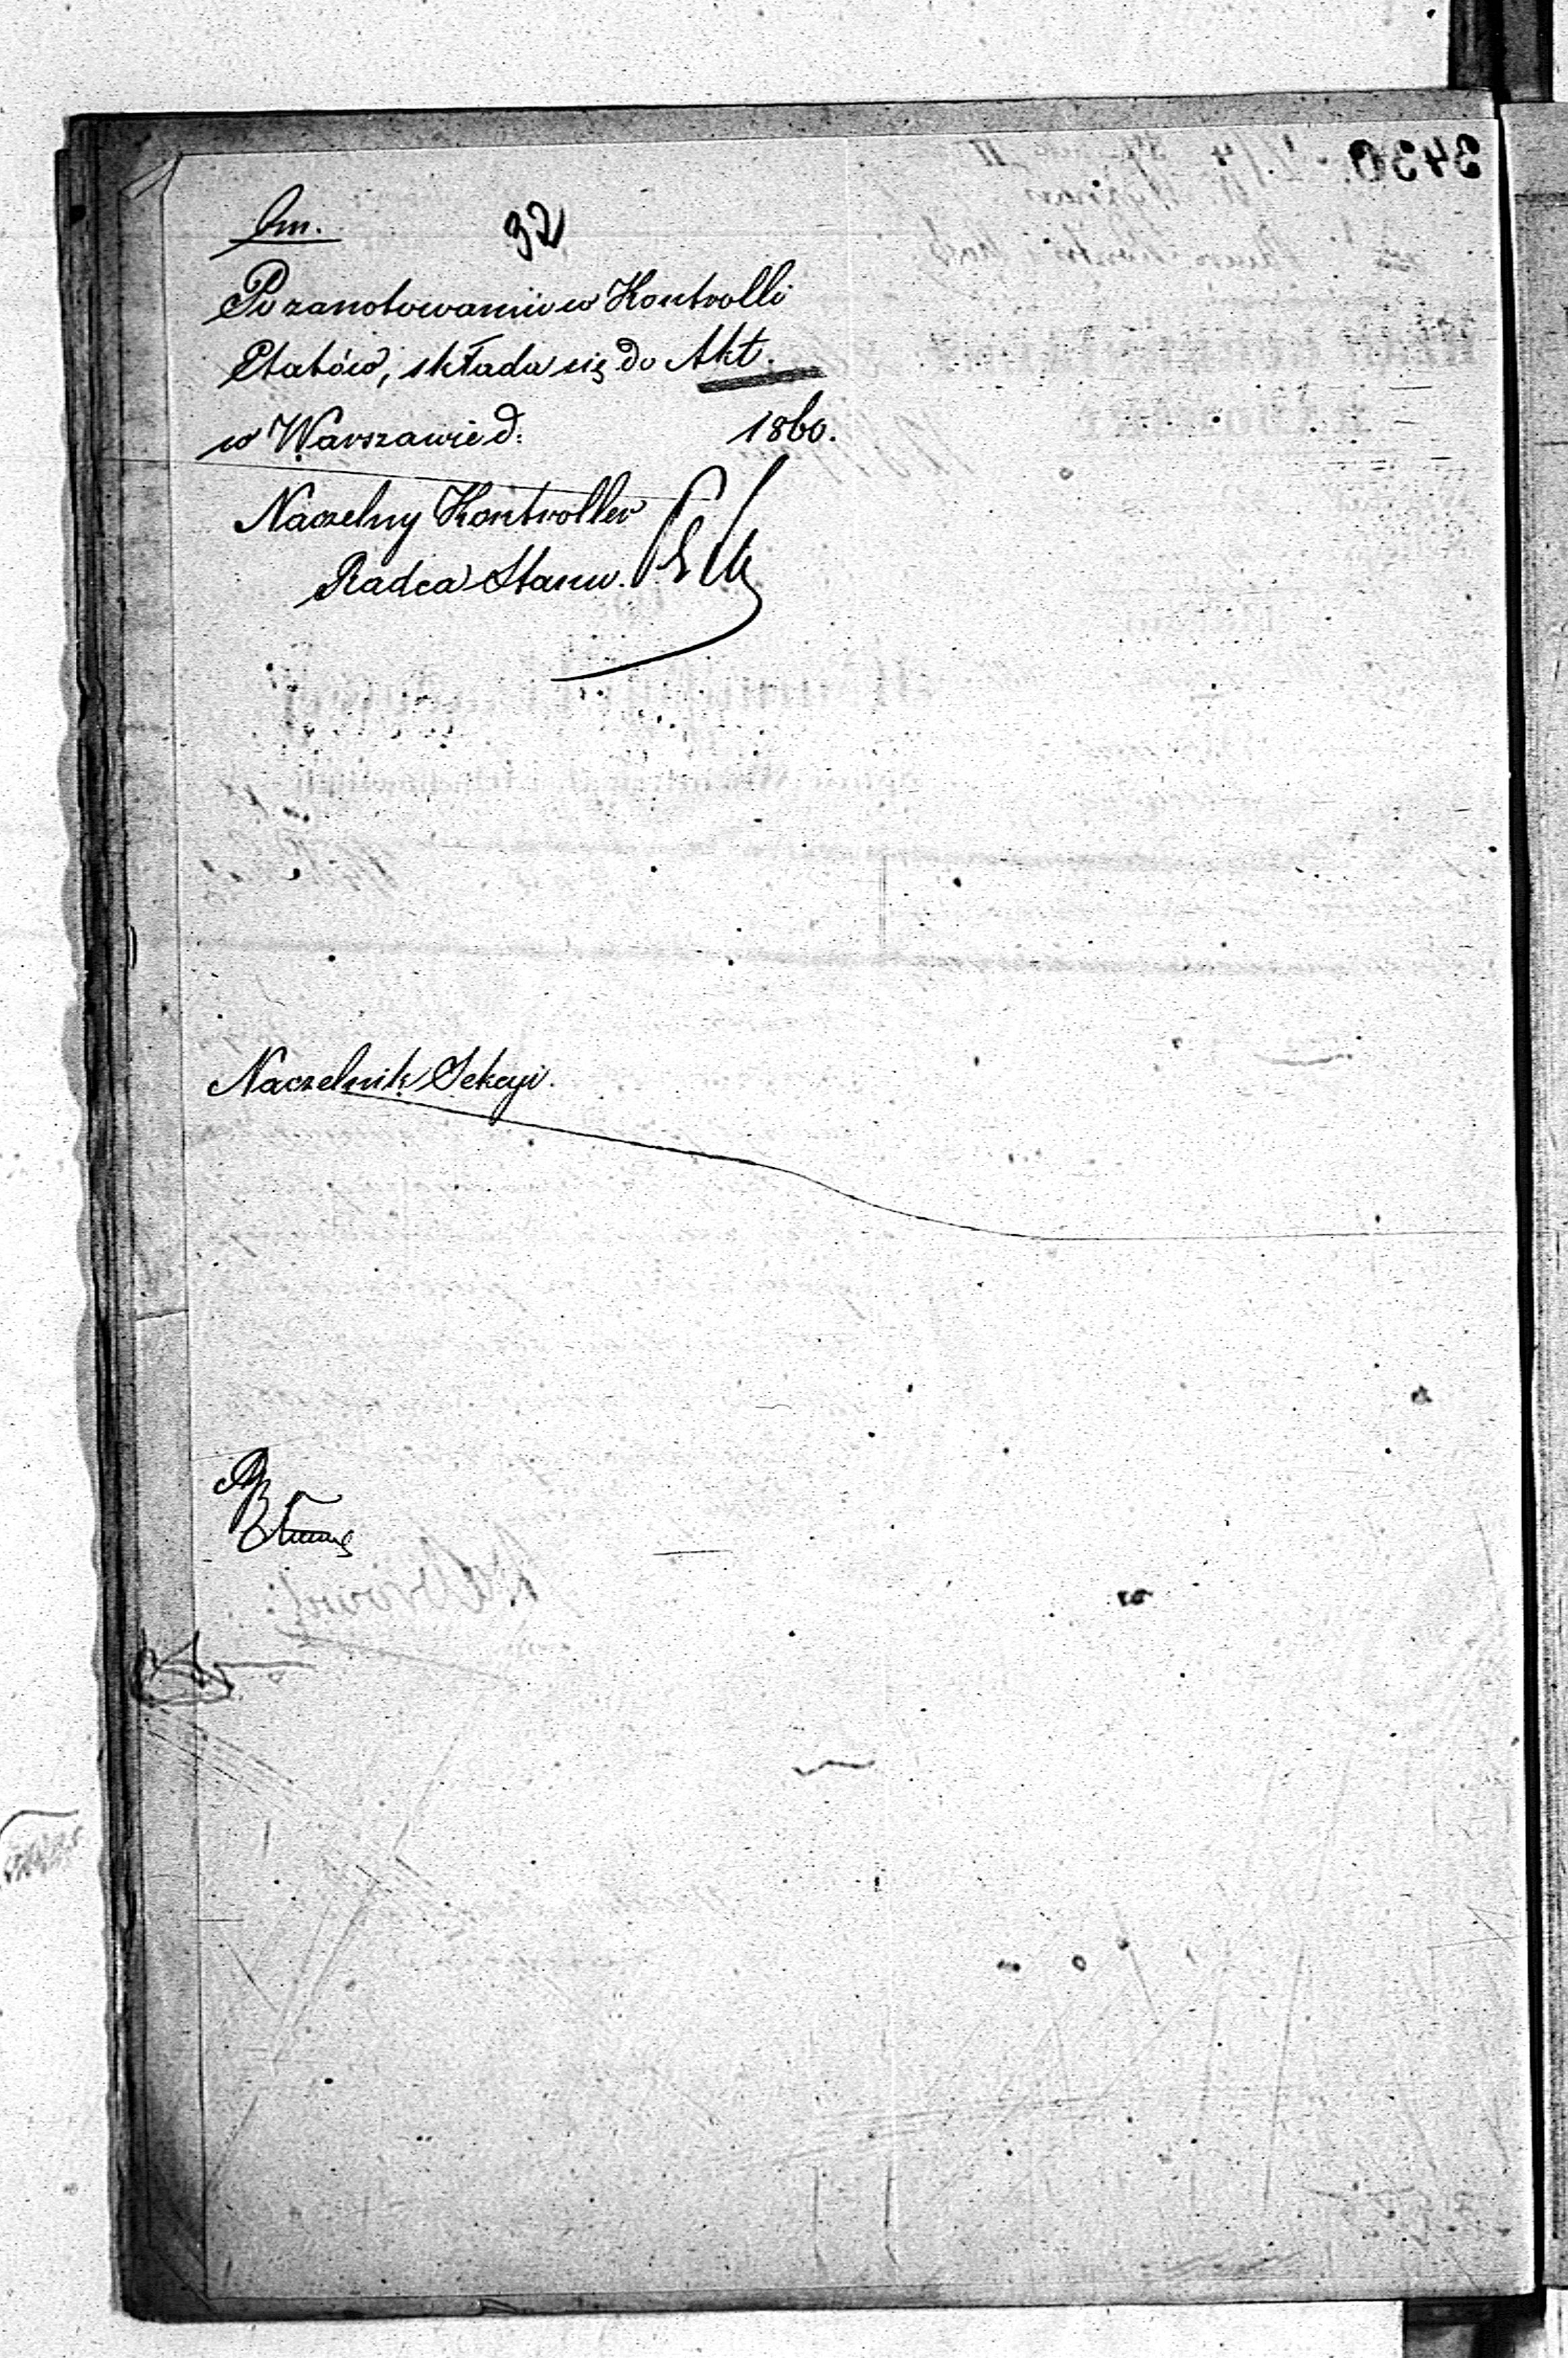 32
Po zanotowaniu w Kontrolli
Etatów, składa się do Akt.
w Warszawie d: 1860.
Naczelny Kontroller
Radca Stanu.
Naczelnik Sekcyi.